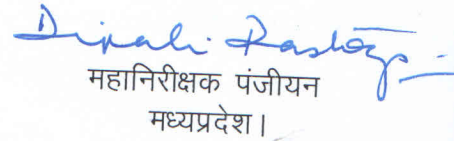 Dipali Rastogi
महानिरीक्षक पंजीयन
मध्यप्रदेश।